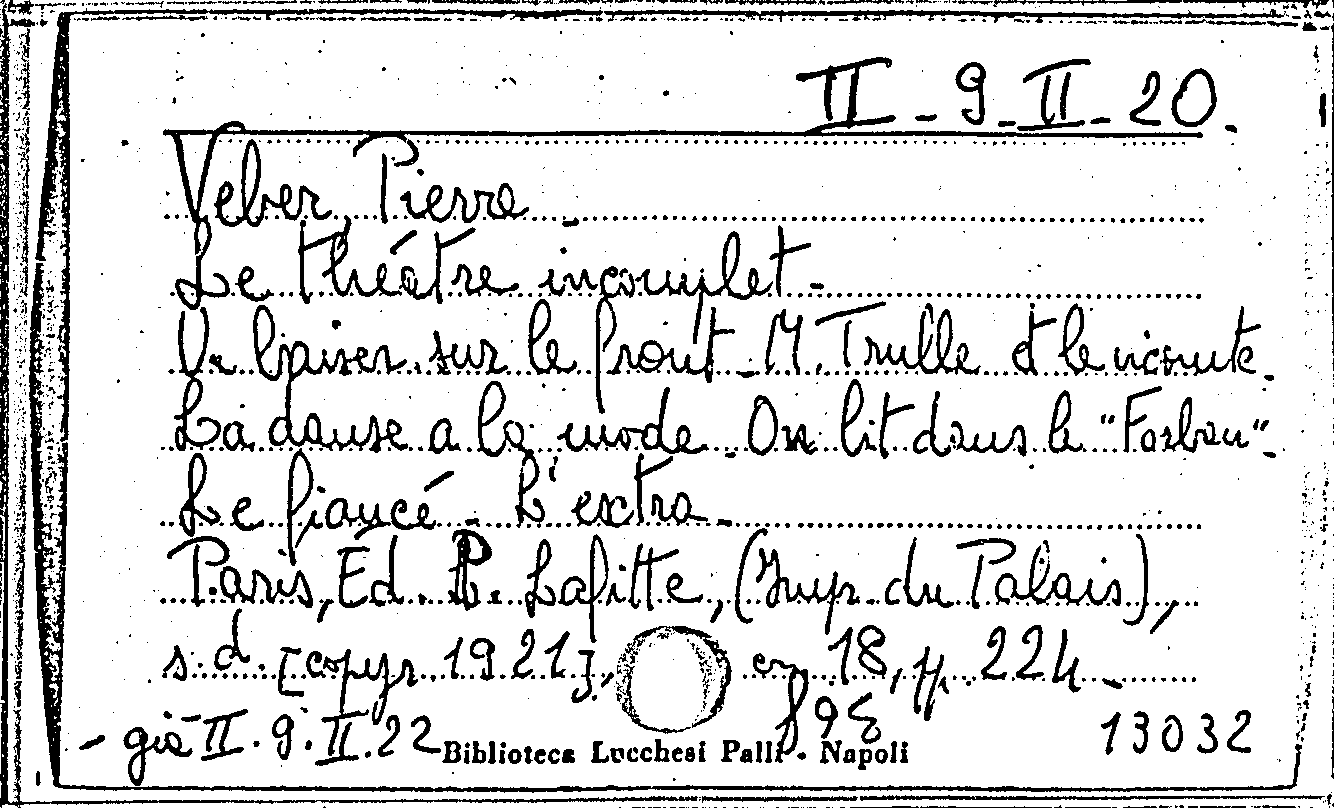 II-9-II-20.
Veber, Pierre -
Le théâtre incomplet -
Un baiser sur le front - M. Trulle et le vicomte.
La danse a la mode - On lit dans le "Forban" -
Le fiancé - L'extra -
Paris, Ed. P. Lafitte, (Imp. du Palais),
s. d. [copyr. 1921], en 18, pp. 224 -
- già II. 9. II. 22
Biblioteca Lucchesi Palli - Napoli
13032